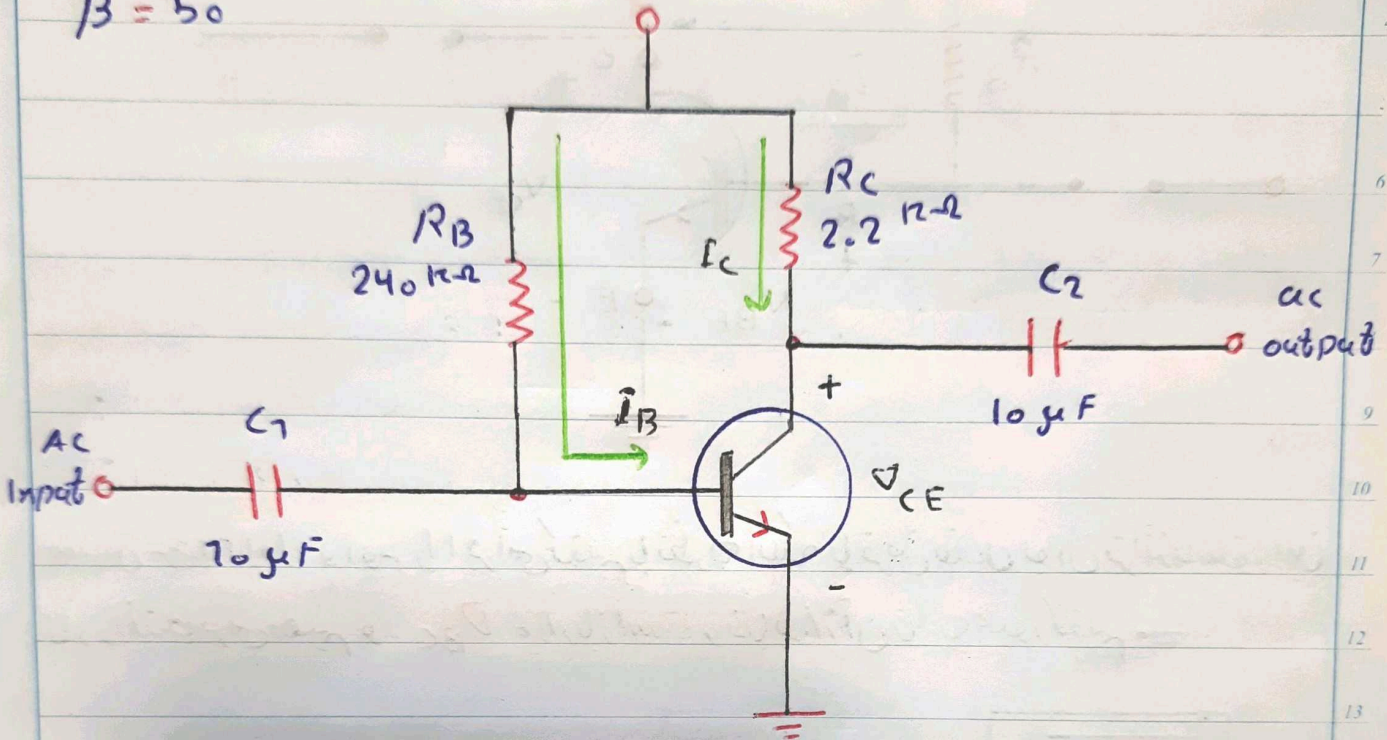 β = 50
RC
2.2 kΩ
RB
240 kΩ
IC
C2
ac
output
10 µF
+
IB
C1
AC
Input
10 µF
VCE
-
6
7
9
10
11
12
13